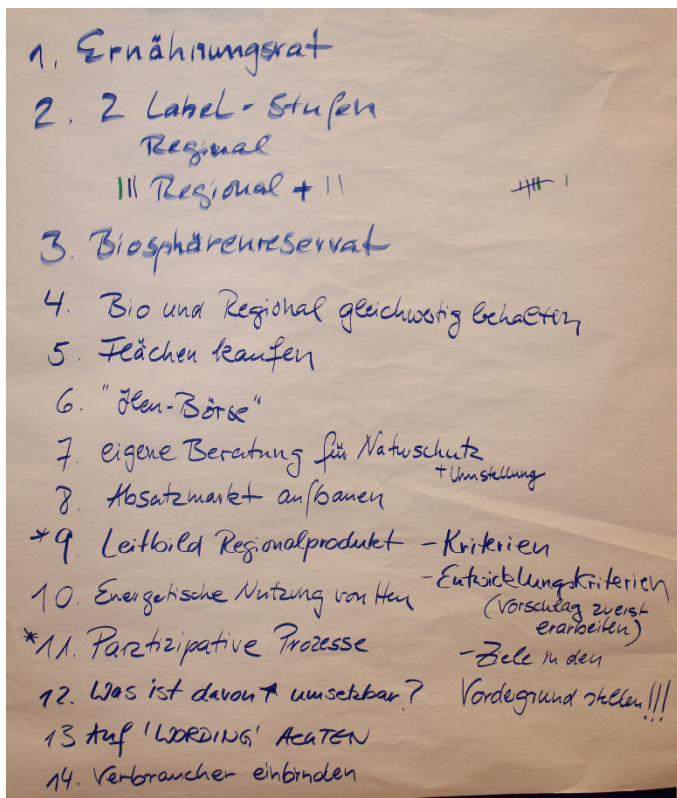 1. Ernährungsrat
2. 2 Label-Stufen
Regional
||| Regional + ||
3. Biosphärenreservat
4. Bio und Regional gleichwertig behalten
5. Flächen kaufen
6. "Heu-Börse"
7. eigene Beratung für Naturschutz
+ Umstellung
8. Absatzmarkt aufbauen
*9 Leitbild Regionalprodukt - Kriterien
- Entwicklungskriterien
(Vorschlag zuerst
erarbeiten)
10. Energetische Nutzung von Heu
*11. Partizipative Prozesse
- Ziele in den
Vordegrund stellen!!!
12. Was ist davon umsetzbar?
13 Auf 'WORDING' ACHTEN
14. Verbraucher einbinden